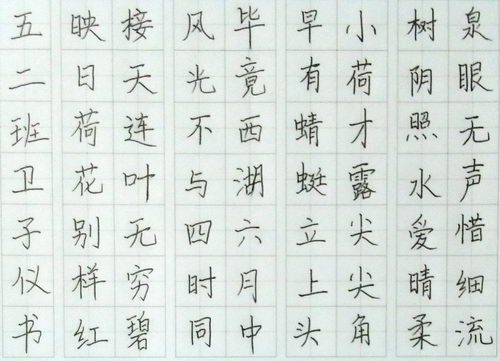 泉眼无声惜细流
树阴照水爱晴柔
小荷才露尖尖角
早有蜻蜓立上头
毕竟西湖六月中
风光不与四时同
接天连叶无穷碧
映日荷花别样红
五二班卫子仪书